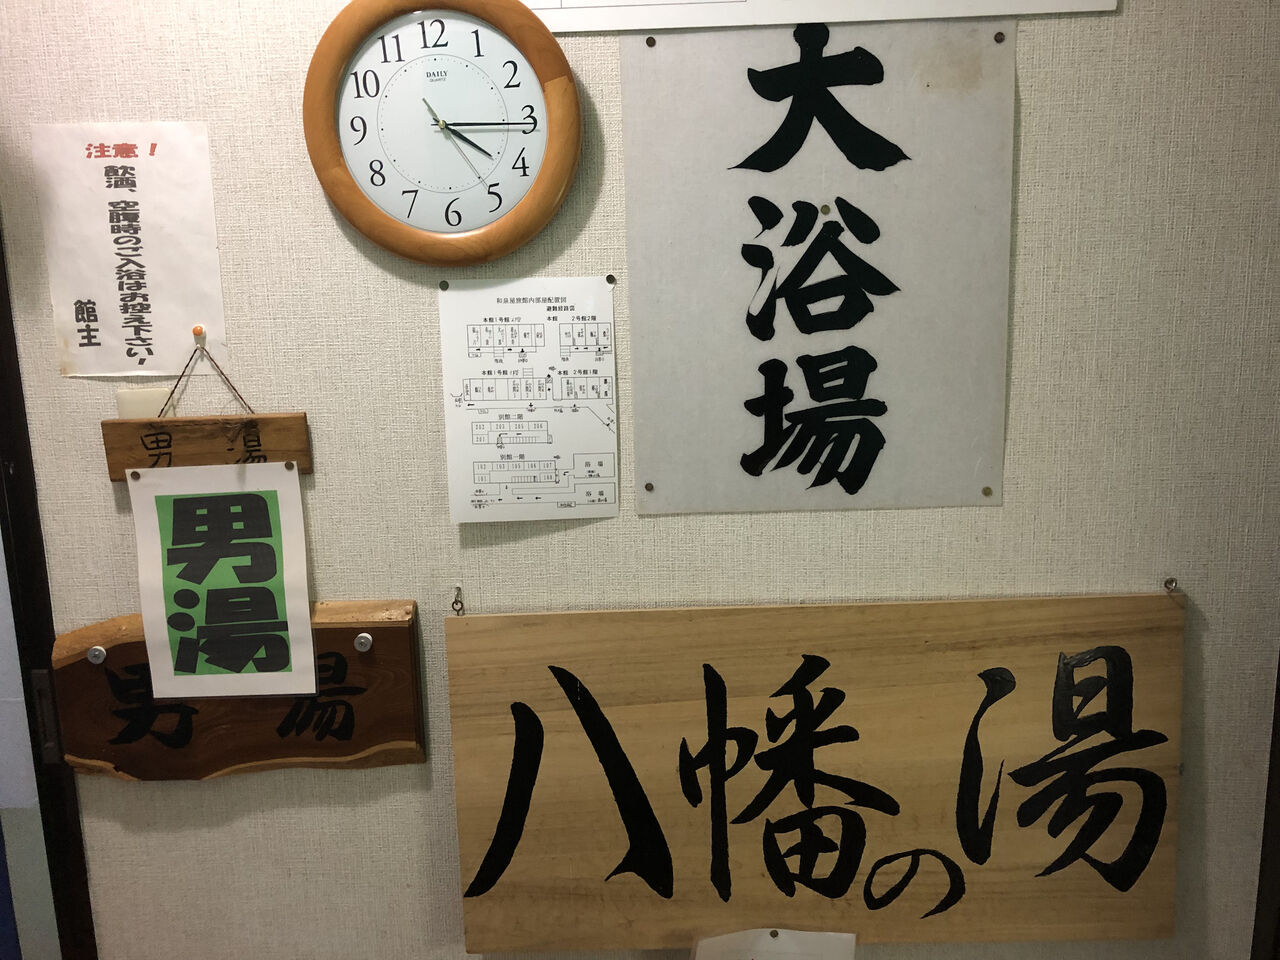 注意！
飲酒、空腹時のご入浴はお控え下さい！
館主
12
1
2
3
4
5
6
7
8
9
10
11
DAILY
QUARTZ
大浴場
和泉屋旅館内部屋配置図
避難経路図
本館1号館2階
本館 2号館2階
本館 1号館1階
本館 2号館1階
別館二階
202 203 205 206
201
別館一階
102 103 105 106 107
101
108
浴場
浴場
男湯
男湯
男湯
八幡の湯